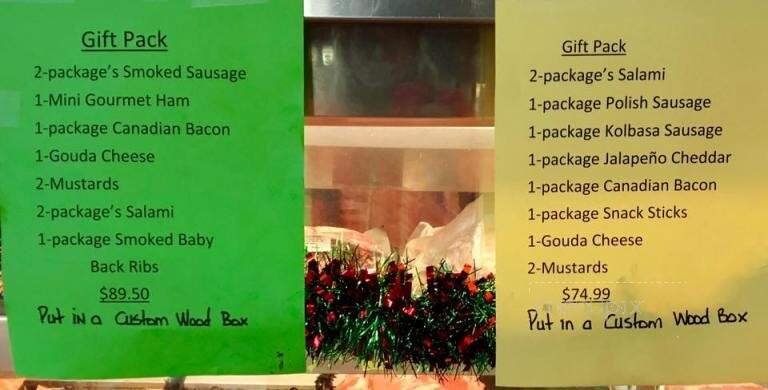 Gift Pack
2-package's Smoked Sausage
1-Mini Gourmet Ham
1-package Canadian Bacon
1-Gouda Cheese
2-Mustards
2-package's Salami
1-package Smoked Baby
Back Ribs
$89.50
Put in a Custom Wood Box
Gift Pack
2-package's Salami
1-package Polish Sausage
1-package Kolbasa Sausage
1-package Jalapeño Cheddar
1-package Canadian Bacon
1-package Snack Sticks
1-Gouda Cheese
2-Mustards
$74.99
Put in a Custom Wood Box